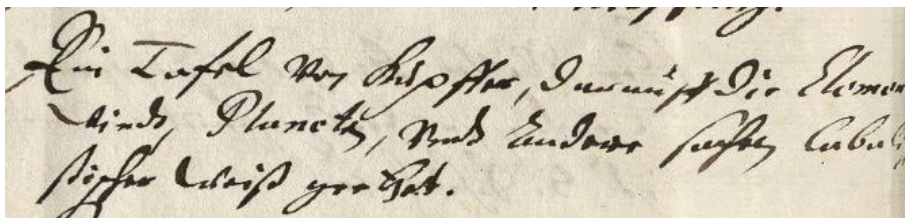 Ein Tafel von Kupffer, darauff die Elemen
Windt, Planeten, vndt andere sachen Cabali
stischer Weiß geetzt.